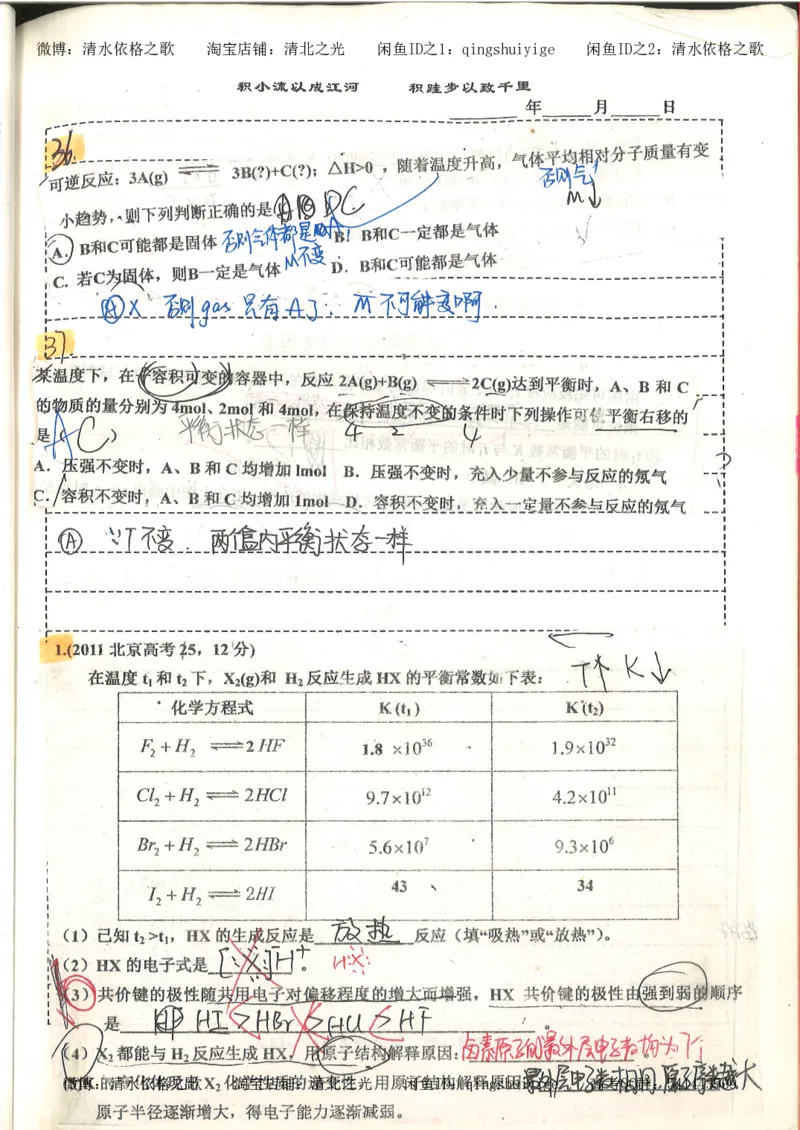 微博：清水依格之歌 淘宝店铺：清北之光 闲鱼ID之1：qingshuiyige 闲鱼ID之2：清水依格之歌
积小流以成江河 积跬步以致千里
年 月 日
36
可逆反应：3A(g) ⇌ 3B(?)+C(?)；△H>0，随着温度升高，气体平均相对分子质量有变
否则气↑
M↓
小趋势，则下列判断正确的是
A．B和C可能都是固体 否则气体都是A M不变 B．B和C一定都是气体
C. 若C为固体，则B一定是气体 D．B和C可能都是气体
Ⓐ× 否则gas只有A了．M不可能变啊．
37
某温度下，在一容积可变的容器中，反应 2A(g)+B(g) ⇌ 2C(g)达到平衡时，A、B 和 C
的物质的量分别为 4mol、2mol 和 4mol，在保持温度不变的条件时下列操作可使平衡右移的
是（AC） 平衡状态一样 4 2 4
A．压强不变时，A、B 和 C 均增加 1mol B．压强不变时，充入少量不参与反应的氖气
C．容积不变时，A、B 和 C 均增加 1mol D．容积不变时，充入一定量不参与反应的氖气
Ⓐ ∵T不变．两值内平衡状态一样
1.(2011 北京高考 25，12 分)
在温度 t₁ 和 t₂ 下，X₂(g)和 H₂ 反应生成 HX 的平衡常数如下表：
← T↑ K↓
化学方程式 K (t₁) K (t₂)
F₂ + H₂ ⇌ 2HF 1.8 ×10³⁶ 1.9×10³²
Cl₂ + H₂ ⇌ 2HCl 9.7×10¹² 4.2×10¹¹
Br₂ + H₂ ⇌ 2HBr 5.6×10⁷ 9.3×10⁶
I₂ + H₂ ⇌ 2HI 43 34
（1）已知 t₂ >t₁，HX 的生成反应是 放热 反应（填“吸热”或“放热”）。
（2）HX 的电子式是 [:X:]⁻H⁺ 。 H:X:
（3）共价键的极性随共用电子对偏移程度的增大而增强，HX 共价键的极性由强到弱的顺序
是 HI>HBr>HCl>HF 。
（4）X₂ 都能与 H₂ 反应生成 HX，用原子结构解释原因：卤素原子的最外层电子结构为7个
微博：清水依格之歌 淘宝店铺：清北之光 闲鱼ID之1：qingshuiyige
最外层电子数相同 原子半径越大
原子半径逐渐增大，得电子能力逐渐减弱。